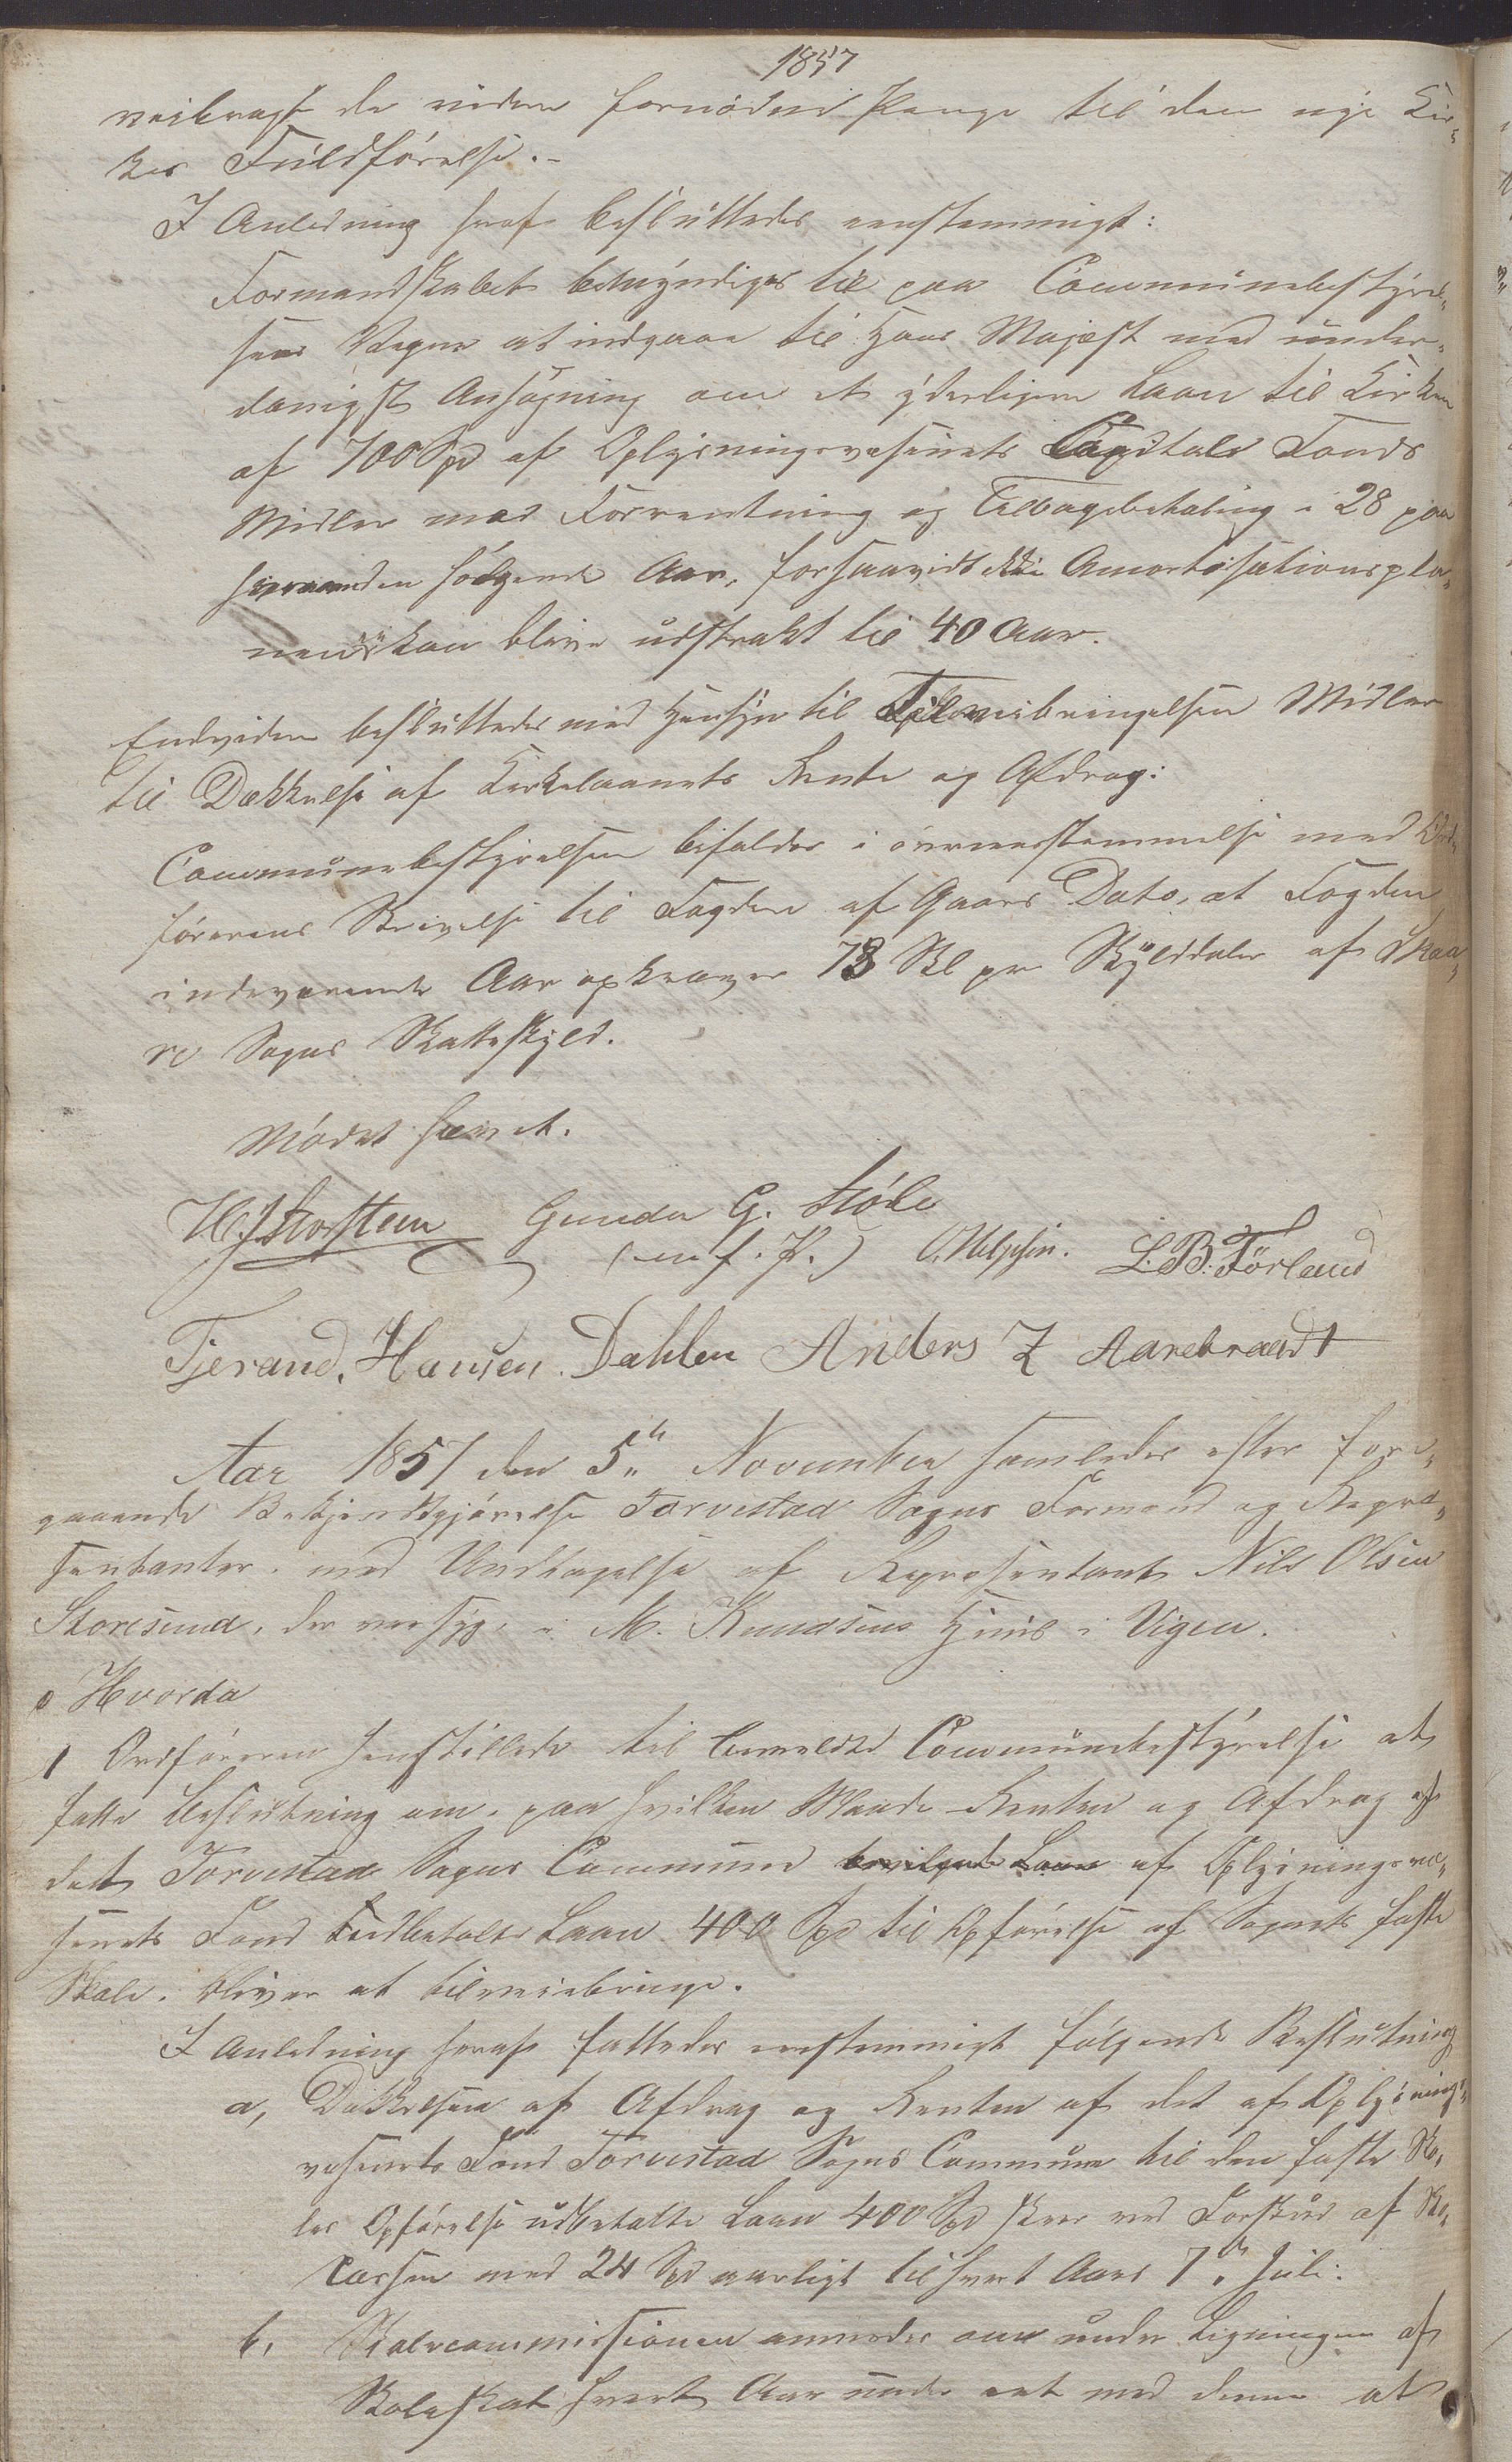 1857
veibragt de videre fornödne Penge til den nye Kir-
kes Fuldförelse.-
I Anledning heraf besluttedes eenstemmigt:
Formandskabet bemyndiges til paa Communebestyrel-
sens Vegne at indgaae til Hans Majest med under-
danigst Ansögning om et yderligere Laan til Kirken
af 700 Spd af Oplysningsvæsenets Capitals Fonds
Midler mod Forrentning og Tilbagebetaling i 28 paa
hverandre fölgende Aar, forsaavidt ikke Amortisationspla-
nen kan blive udstrakt til 40 Aar.
Endvidere besluttedes med Hensyn til Tilveibringelsen Midler
til Dækkelse af Kirkelaanets Rente og Afdrag:
Communebestyrelsen bifalder i overeenstemmelse med Ord-
förerens Skrivelse til Fogden af Gaars Dato, at Fogden
indeværende Aar opkræver 78 Skl pr Skylddaler af Skaa-
re Sogns Matteskyld.
Mödet hævet.
H. J. Storsteen Gunder G. Stöle
(m. f. P.) O. Helgesen. L. B. Förland
Tjerand. Hansen. Dahlen Anders Z Aarebraadt
Aar 1857 den 5te November samledes efter fore-
gaaende Bekjendtgjörelse Torvestad Sogns Formænd og Repræ-
sentanter, med Undtagelse af Repræsentant Nils Olsen
Storesund, der var syg, i M. Knudsens Huus i Vigen.
Hvorda
1 Ordföreren henstillede til bemeldte Communebestyrelse at
fatte Beslutning om, paa hvilken Maade Renten og Afdrag af
det Torvestad Sogns Commune bevilgede Laan af Oplysningsvæ-
senets Fond udbetalte Laan 400 Spd til Opförelse af Sognets faste
Skole, bliver at tilveiebringe.
I Anledning heraf fattedes eenstemmigt fölgende Beslutning
a, Dækkelsen af Afdrag og Renten af det af Oplysnings-
væsenets Fond Torvestad Sogns Commune til den faste Sko-
les Opförelse udbetalte Laan 400 Spd skeer ved Forskud af Sko-
lecassen med 24 Spd aarligt til hvert Aars 7de Juli.
b, Skolecommissionen anmodes om under Ligningen af
Skoleskat hvert Aar under eet med denne at